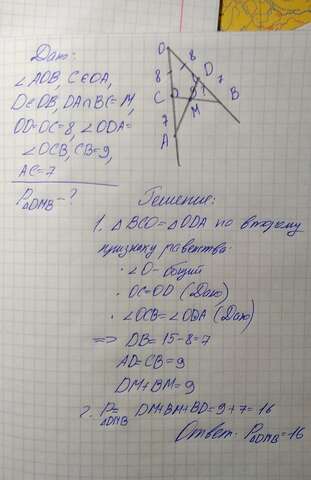 Дано:
∠AOB, C∈OA,
D∈OB, DA∩BC=M,
OD=OC=8, ∠ODA=
∠OCB, CB=9,
AC=7
P△DMB-?
O
8
8
D
7
C
B
7
M
A
Решение:
1. △BCO=△ODA по второму
признаку равенства.
· ∠O- общий
· OC=OD (Дано)
· ∠OCB=∠ODA (Дано)
=> DB= 15-8=7
AD=CB=9
DM+BM=9
2. P△DMB= DM+BM+BD=9+7=16
Ответ: P△DMB=16